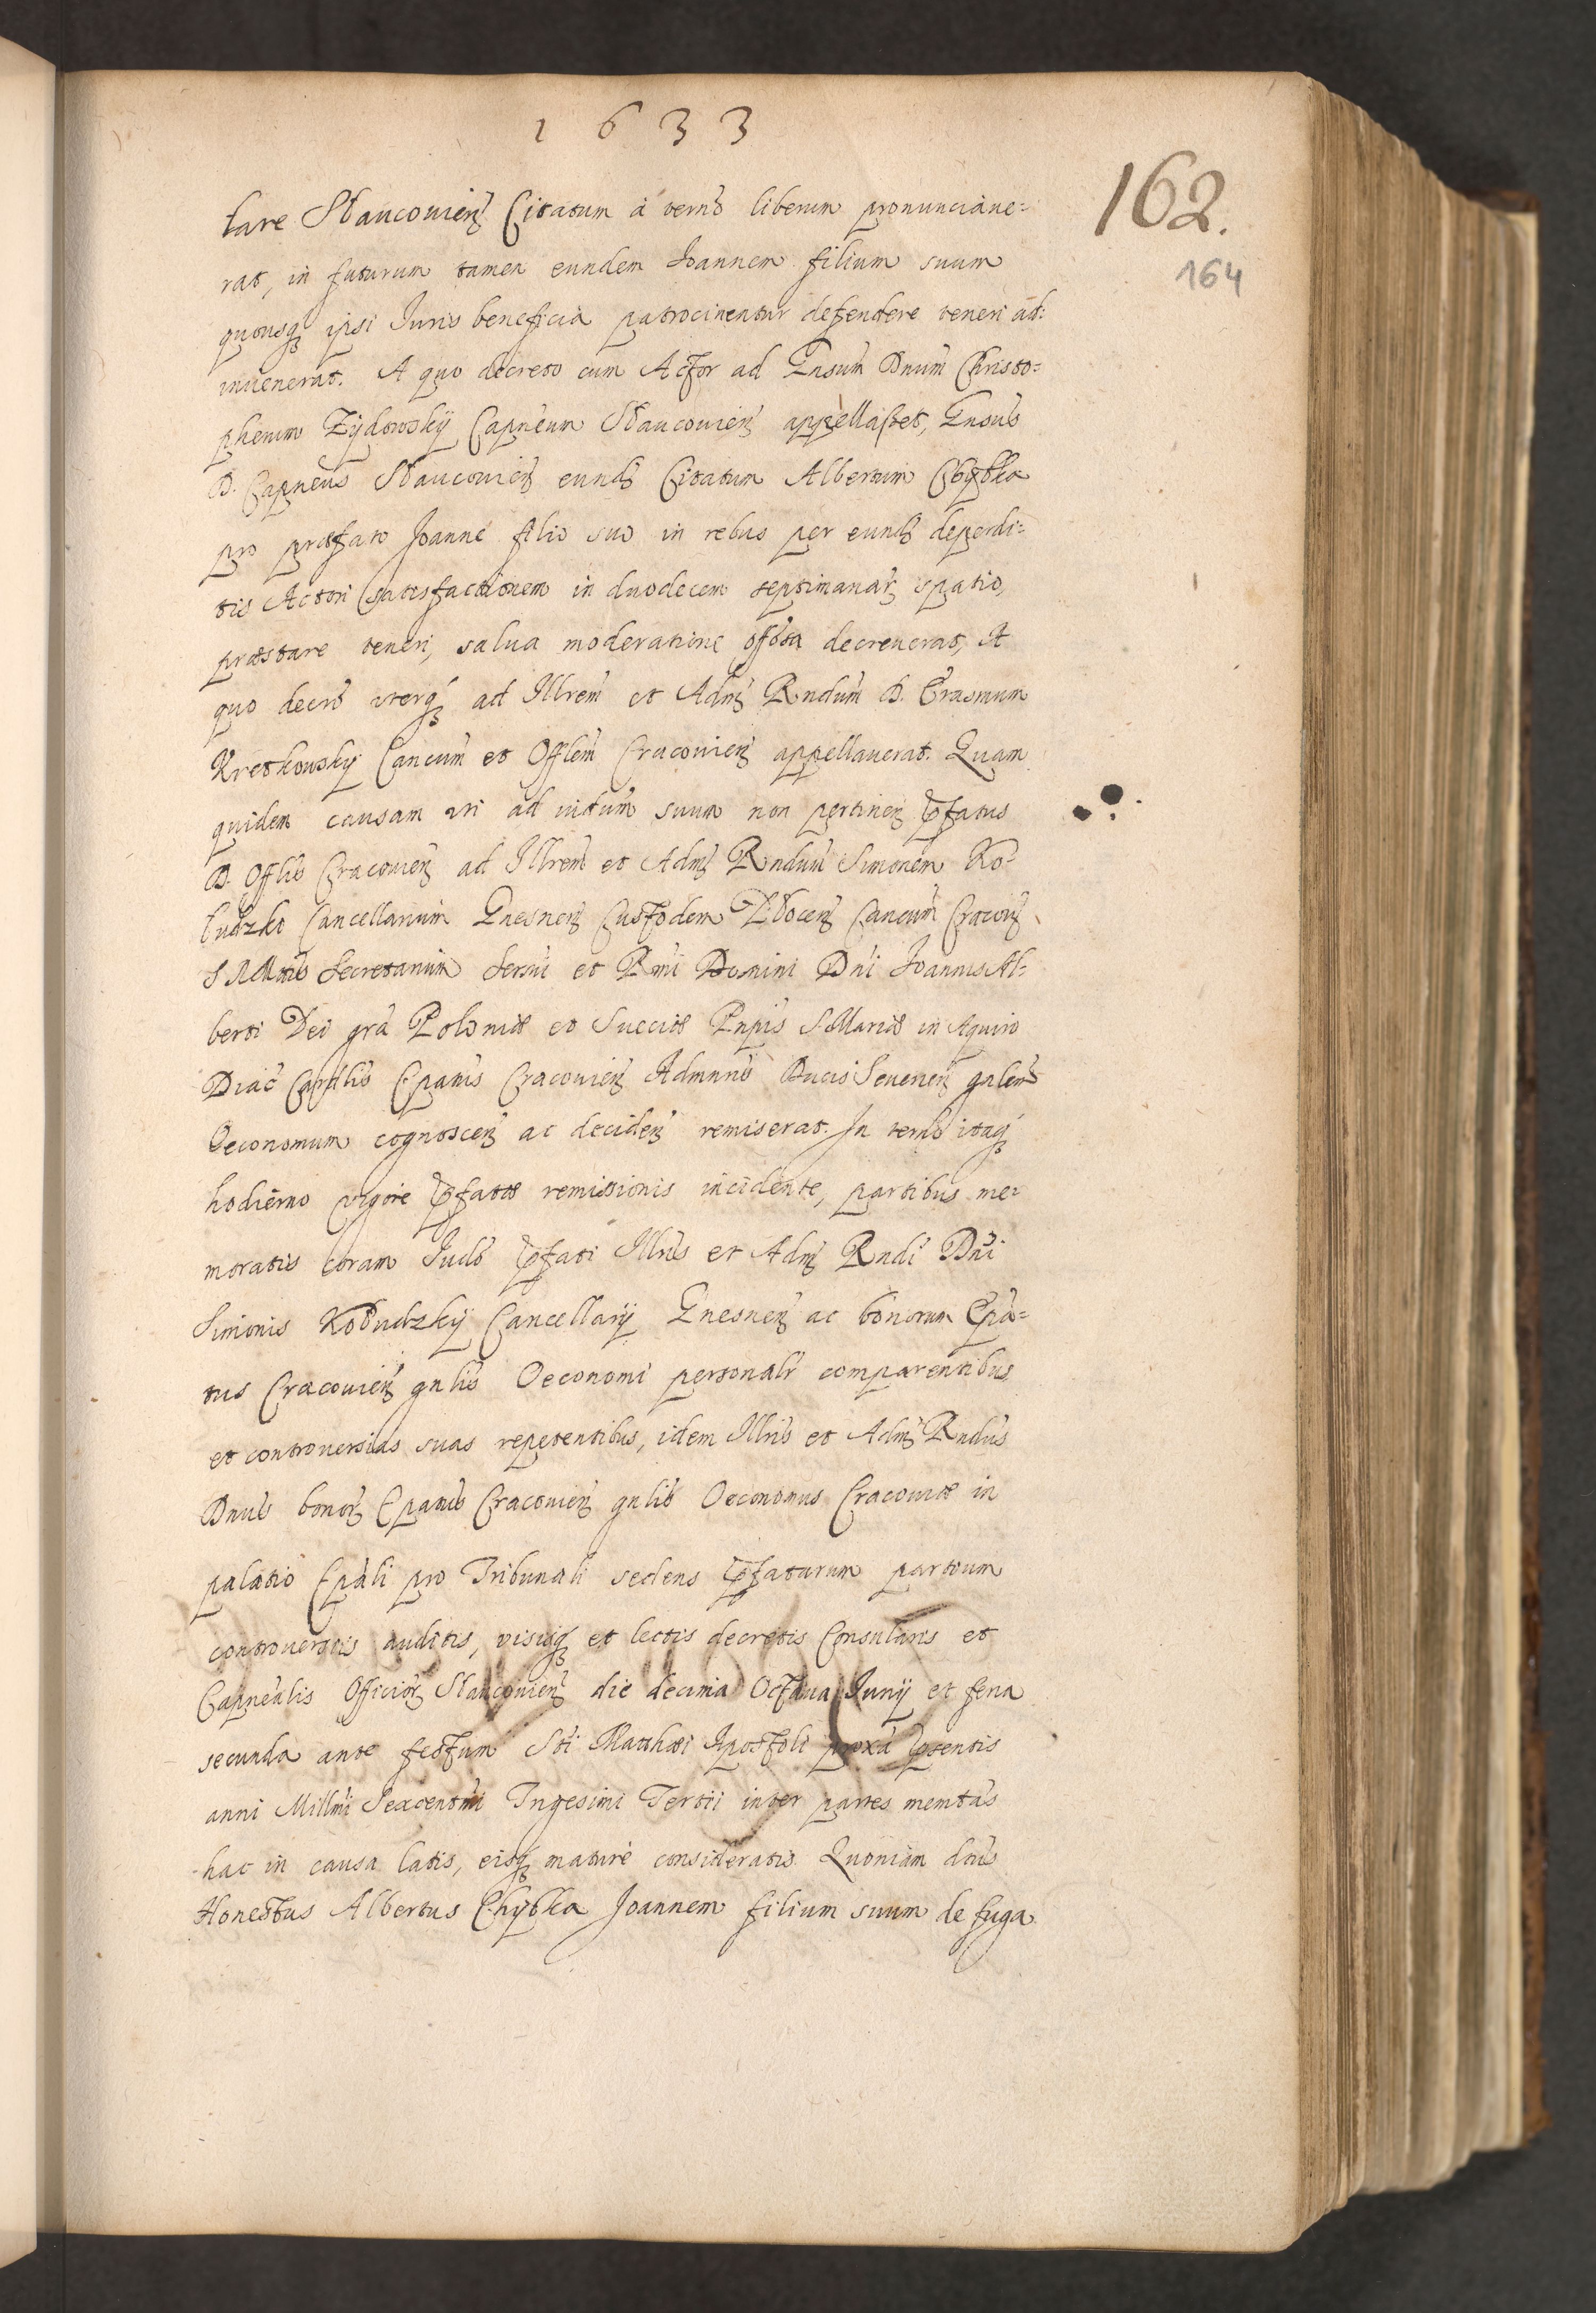 1633
162.
164
lare Sławcouien̄ Citatum à termō liberum pronunciaue=
rat, in futurum tamen eundem Joannem filium suum
quousq̨ ipsi Juris beneficia patrocinentur defendere teneri ad=
inuenerat. A quo decreto cum Actor ad Gnsum̄ Dnum̄ Christo=
pherum Zÿdowskÿ Capneum̄ Sławcouien̄ appellasset, Gnsus̄
D. Capneus̄ Sławcouien̄ eund̄ Citatum Albertum Chÿbka
pro præfato Joanne filio suo in rebus per eund̄ deperdi=
tis Actori satisfactionem in duodecem septimanar̄ spatio,
præstare teneri, salua moderatione decreuerat, A
quo decrō uterq̨ ad Illrem̄ et Adm̄ Rndum̄ D. Erasmum
Kretkowskÿ Cancum̄ et Offlem̄ Cracouien̄ appellauerat. Quam
quidem causam uti ad suum non pertinen̄ p̄fatus
D. Offlis̄ Cracouien̄ ad Illrem̄ et Adm̄ Rndum̄ Simonem Ko=
łudzko Cancellarium Gnesnen̄ Custodem Płocen̄ Cancum̄ Cracouien̄
S. R. Mtis̄ Secretarium Sersmi et Rmi Domini Dni Joannis Al=
berti Dei grā Poloniæ et Sueciæ Pnpis̄ S. Mariæ in Aquiro
Diac̄ Cardlis̄ Epatus̄ Cracouien̄ Admnris̄ Ducis Seuerien̄ gnlem̄
Oeconomum cognoscen̄ ac deciden̄ remiserat. In termō itaq̨
hodierno vigore p̄fatæ remissionis incidente, partibus me=
moratis coram Judō p̄fati Illris̄ et Adm̄ Rndi Dnī
Simonis Kołudzkÿ Cancellarÿ Gnesnen̄ ac bonorum Epa=
tus Cracouien̄ gnlis̄ Oeconomi personalr̄ comparentibus
et controuersias suas repetentibus, idem Illris̄ et Adm̄ Rndus̄
Dnus̄ bonor̄ Epatus̄ Cracouien̄ gnlis̄ Oeconomus Cracouiæ in
palatio Epāli pro Tribunali sedens p̄fatarum partium
controuersiis auditis, visisq̨ et lectis decretis Consularis et
Capnealis̄ Officior̄ Sławcouien̄ die decima Octaua Junÿ et feria
secunda ante festum Sti Matthæi Apostoli proxā p̄sentis
anni Millmī Sexcentmī Trigesimi Tertii inter partes memtas̄
hac in causa latis, eisq̨ mature consideratis. Quoniam dictus̄
Honestus Albertus Chÿbka Joannem filium suum de fuga